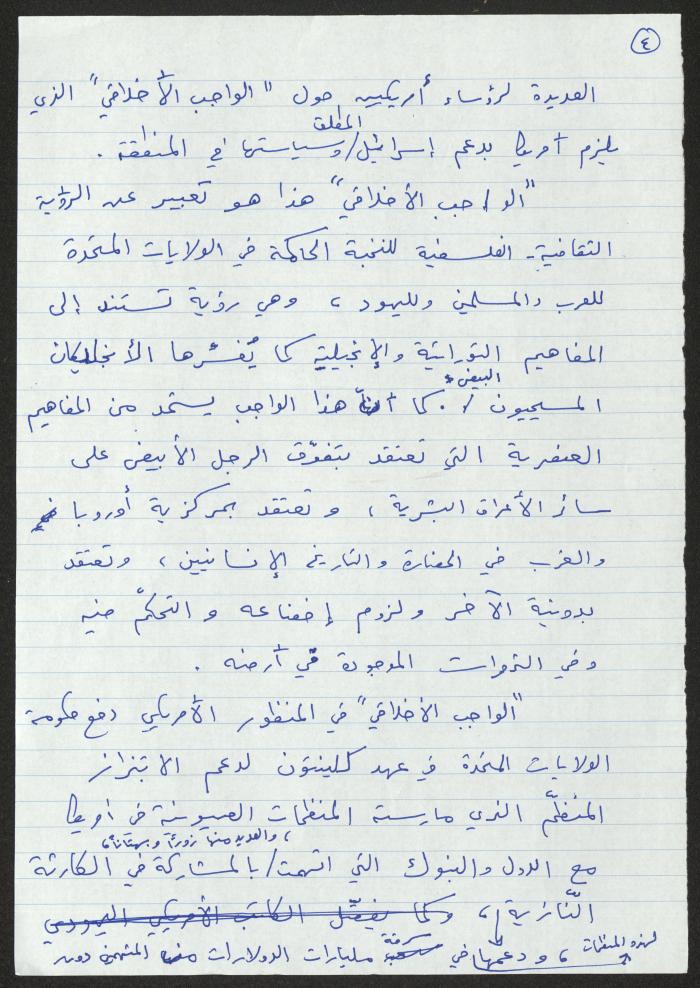 ٤
العديدة لرؤساء أمريكيين حول "الواجب الأخلاقي" الذي
المطلق
يلزم أمريكا بدعم إسرائيل/وسياستها في المنطقة .
"الواجب الأخلاقي" هذا هو تعبير عن الرؤية
الثقافية - الفلسفية للنخبة الحاكمة في الولايات المتحدة
للعرب والمسلمين ولليهود ، وهي رؤية تستند إلى
المفاهيم التوراتية والإنجيلية كما يُفسّرها الأنجليكان
البيض
المسيحيون / . كما أنّ هذا الواجب يستمد من المفاهيم
العنصرية التي تعتقد بتفوّق الرجل الأبيض على
سائر الأعراق البشرية ، وتعتقد بمركزية أوروبا
والغرب في الحضارة والتاريخ الإنسانيين ، وتعتقد
بدونية الآخر ولزوم إخضاعه والتحكّم فيه
وفي الثروات الموجودة في أرضه .
"الواجب الأخلاقي" في المنظور الأمريكي دفع حكومة
الولايات المتحدة في عهد كلينتون لدعم الابتزاز
المنظّم الذي مارسته المنظمات الصهيونية في أوروبا
، والعديد منها زوراً وبهتاناً ،
مع الدول والبنوك التي اتهمت/بالمشاركة في الكارثة
النّازية ، وكما يفعل الكاتب الأمريكي اليهودي
لهذه المنظمات ، ودعمها في سرقة مليارات الدولارات من المتهمين دون